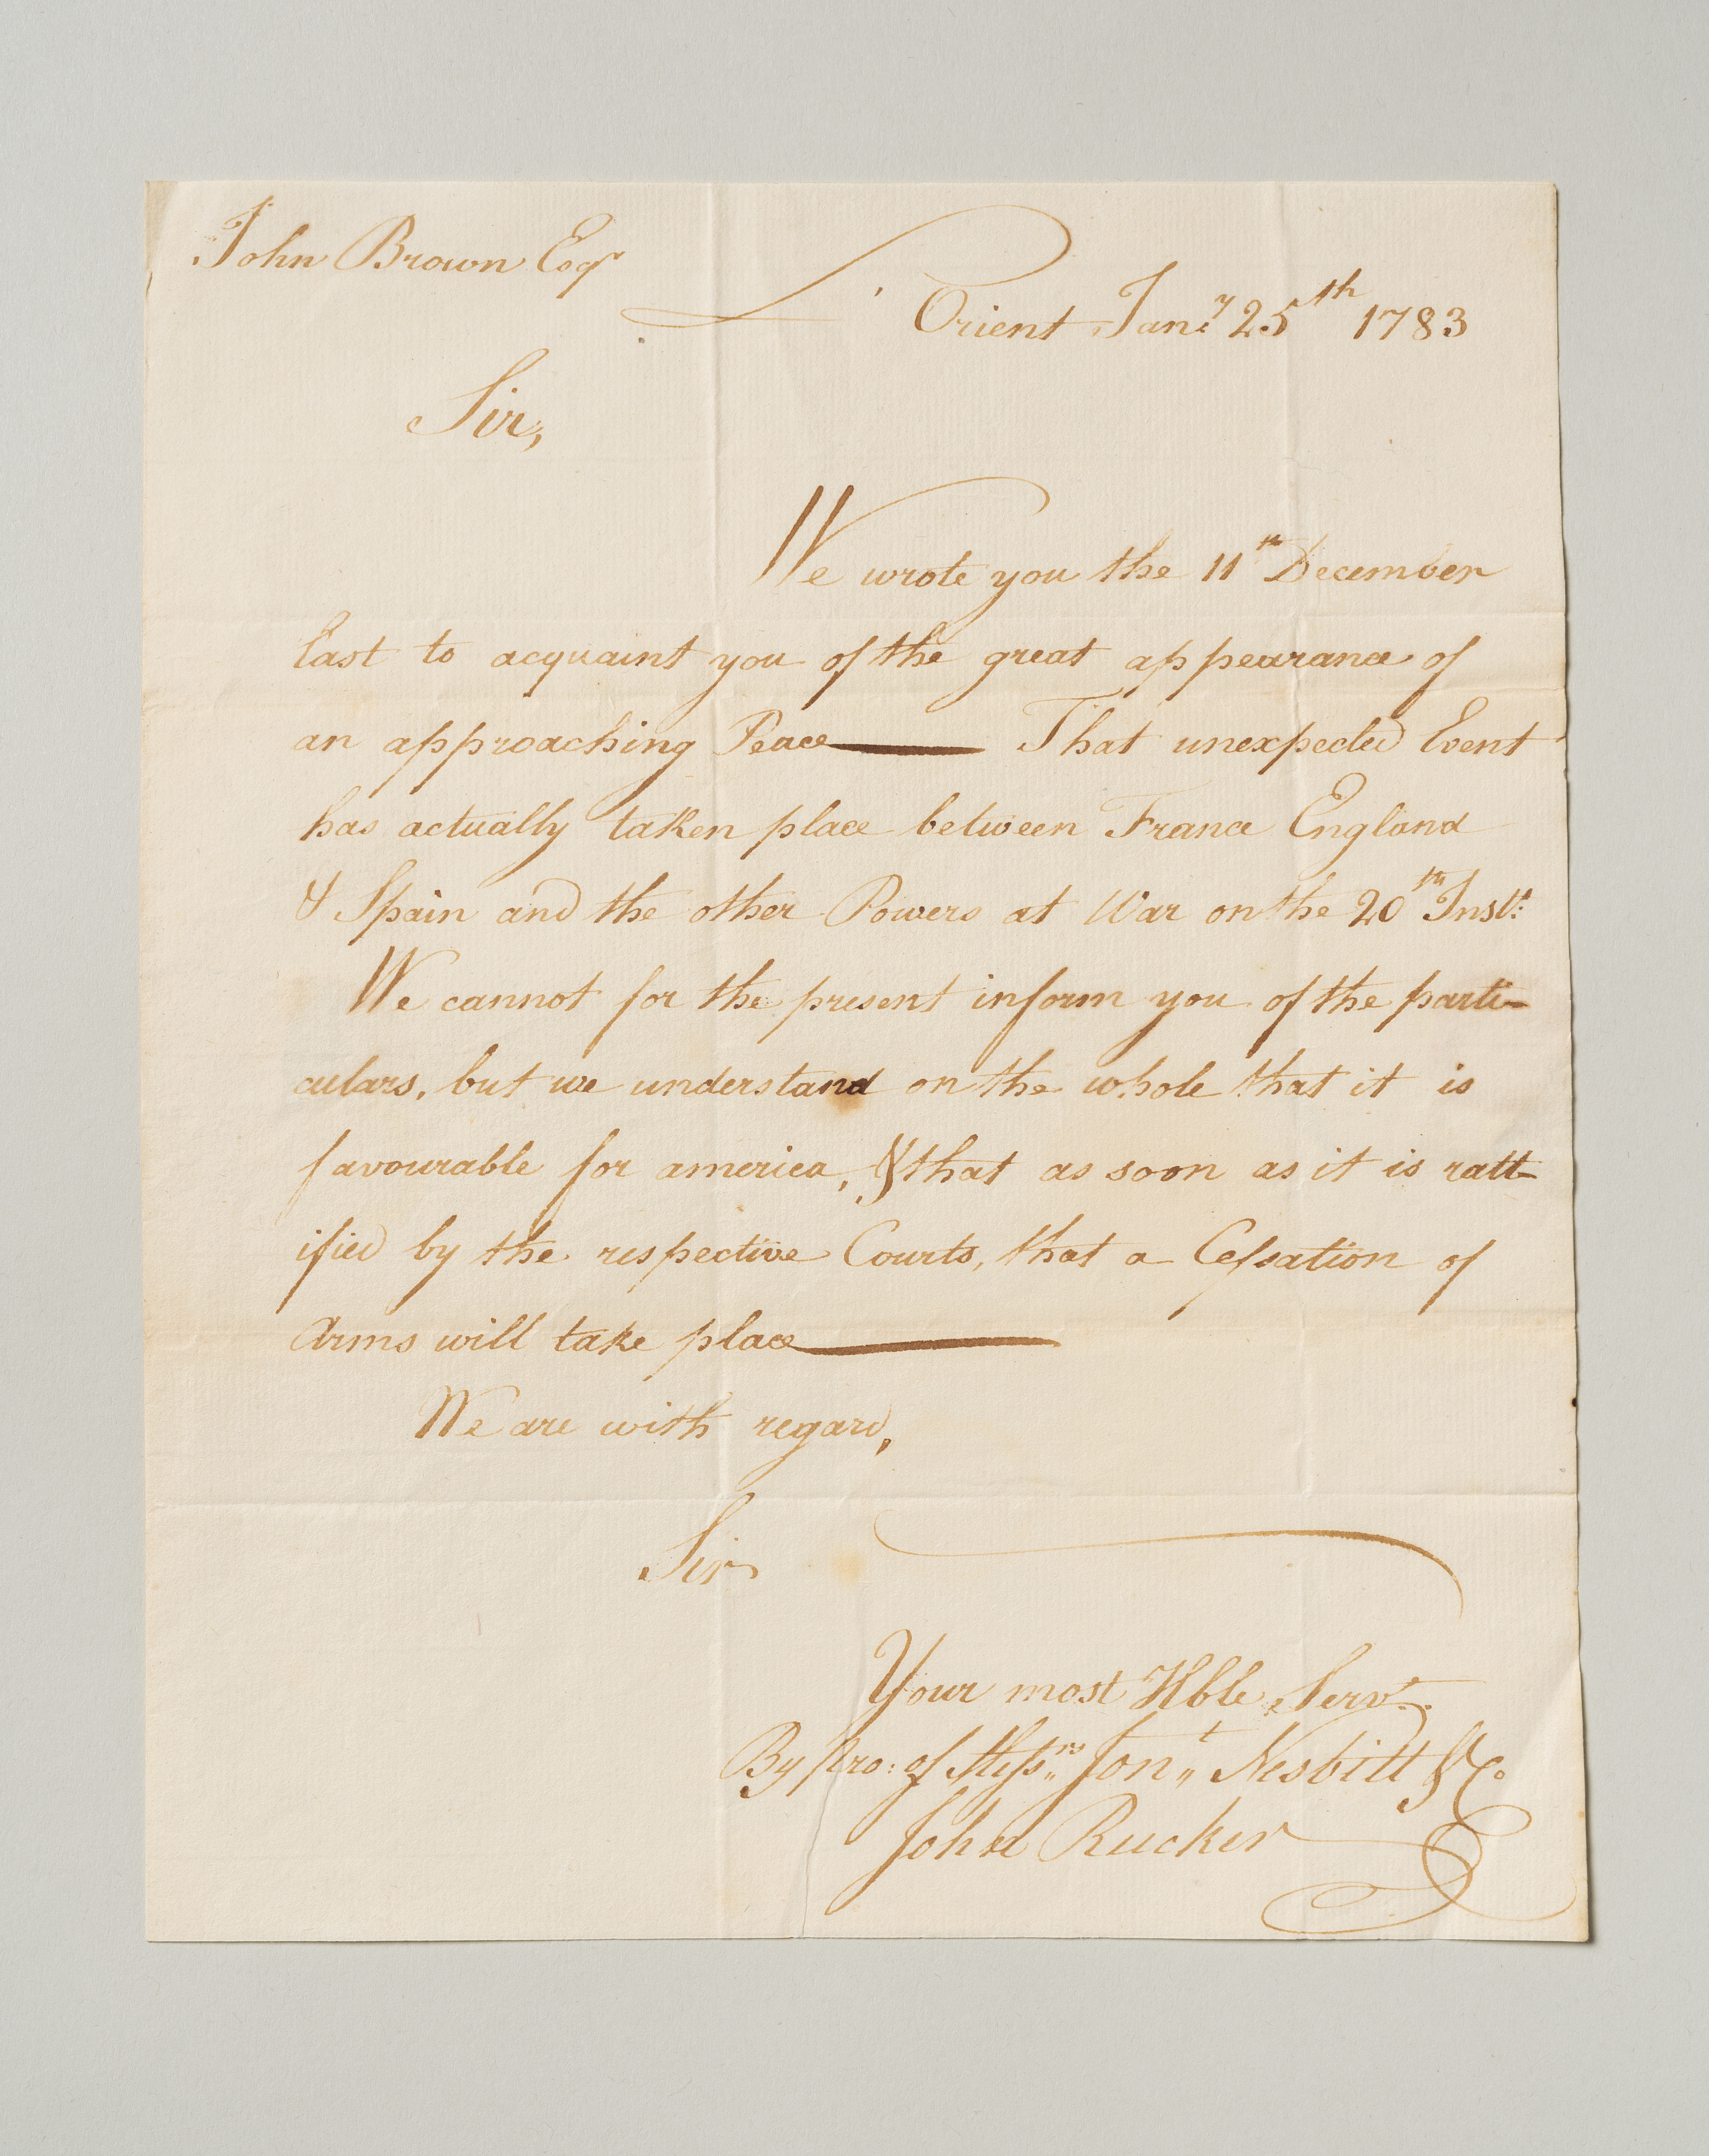 John Brown Esqr
L'Orient Jany 25th 1783
Sir,
We wrote you the 11th December
last to acquaint you of the great appearance of
an approaching Peace—— That unexpected Event
has actually taken place between France England
& Spain and the other Powers at War on the 20th Inst:
We cannot for the present inform you of the parti-
culars, but we understand on the whole that it is
favourable for america, & that as soon as it is ratt-
ified by the respective Courts, that a Cessation of
Arms will take place——
We are with regard,
Sir
Your most Hble Servt.
By pro: of Messrs Jont Nesbitt & Co
John Rucker